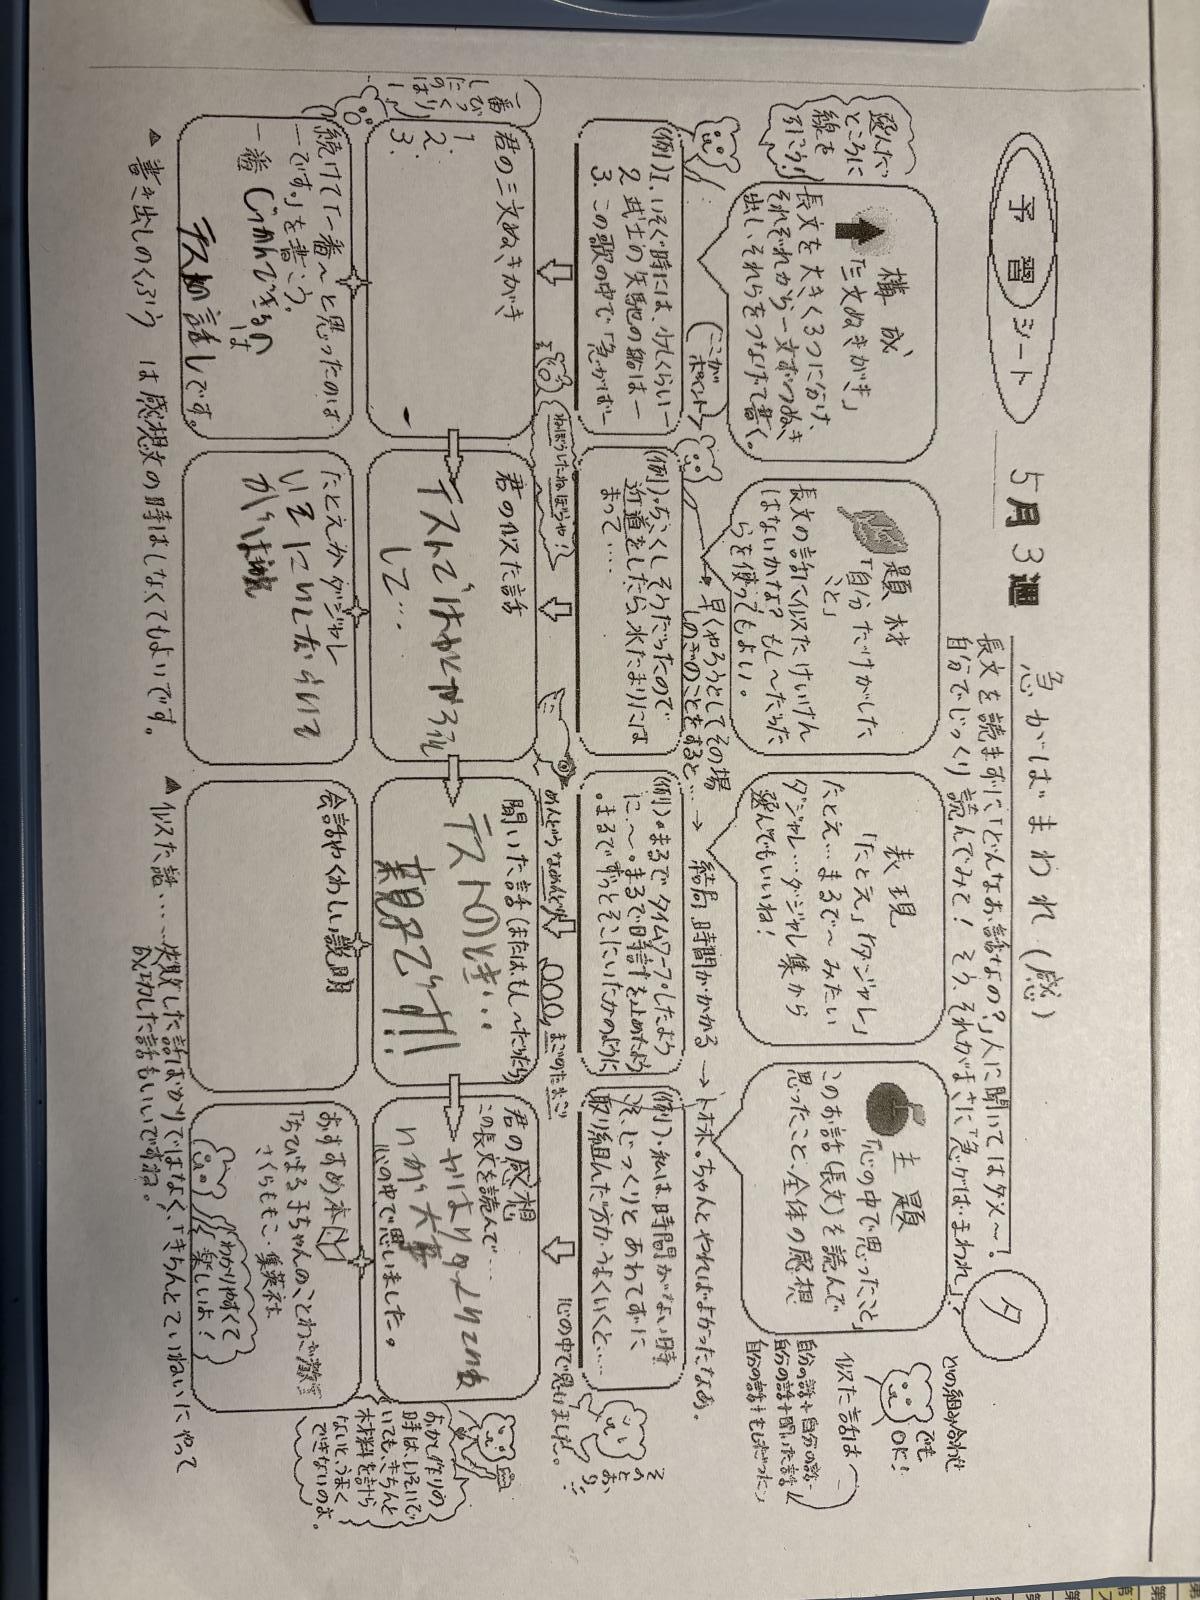 予習シート
5月3週
急がばまわれ（感）
長文を読まずに「どんなお話なの？」人に聞いてはダメ〜！
自分でじっくり読んでみて！そう、それがまさに「急がば・まわれ」？
タ
どの組み合わせ
でも
OK！
選んだ
ところに
線を
引こう！
構成
「三文ぬきがき」
長文を大きく3つに分け、
それぞれから一文ずつぬき
出し、それらをつなげて書く。
題材
「自分だけがした
こと」
長文の話に似たけいけん
はないかな？もし〜だった
らを使ってもよい。
表現
「たとえ」「ダジャレ」
たとえ…まるで〜みたい
ダジャレ…ダジャレ集から
選んでもいいね！
主題
「心の中で思ったこと」
このお話（長文）を読んで
思ったこと・全体の感想
似た話は
自分の話＋自分の話
自分の話＋聞いた話
自分の話＋もしだったら
（ここが
ポイント）
早くやろうとしてその場
しのぎのことをすると…→
結局、時間がかかる→
トホホ。ちゃんとやればよかったなあ。
（例）1. いそぐ時には、少しくらい―
2. 武士の矢馳の船は―
3. この歌の中で「急がば―
（例）・ちこくしそうだったので
近道をしたら、水たまりには
まって…
（例）・まるでタイムワープしたよう
に〜。まるで時計を止めたよう
・まるでずっとそこにいたかのように
（例）・私は、時間がない時
ほど、じっくりとあわてずに
取り組んだ方がうまくいくと…
心の中で思いました。
そ
の
と
お
り
!!
ねぼうしたねぼうや！
まごのたまご
一番
びっくり
したの
は〜
君の三文ぬきがき
1.
2.
3.
君の似た話
テストではやくやろうと
して…
聞いた話（または、もし〜だったら）
テストのとき…
親もです!!
君の感想
この長文を読んで…
やはりタメりこむ
のが大事
心の中で思いました。
続けて「一番〜と思ったのは
―です。」を書こう。
一番
じっかんできるの
は
テストの話しです。
たとえかダジャレ
会話やくわしい説明
おすすめ本
「ちびまる子ちゃんのことわざ教室」
さくらももこ・集英社
わかりやすくて
楽しいよ！
おかし作りの
時は、いそいで
いても、きちんと
材料を計ら
ないと、うまく
できないのよ。
▲ 書き出しのくふう は感想文の時はしなくてもよいです。
▲ 似た話……失敗した話ばかりではなく、「きちんとていねいにやって
成功した話もいいですね。